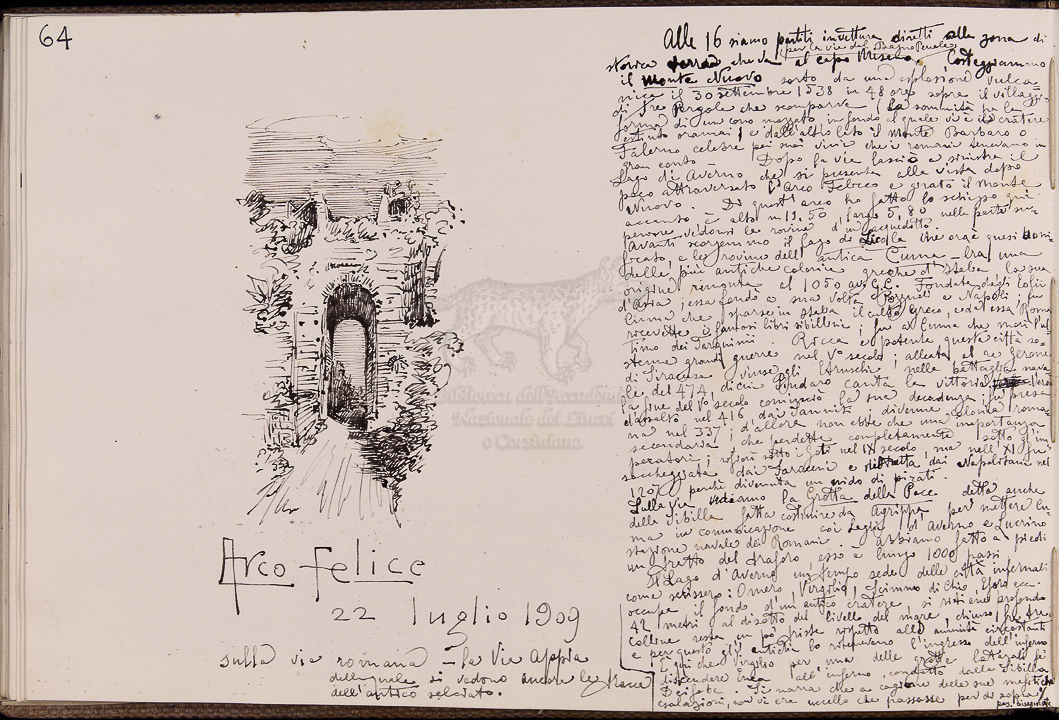 64
Alle 16 siamo partiti in vettura diretti alla zona di
(per la via del Bagno Penale)
storica che va al capo Miseno. Costeggiammo
il Monte Nuovo sorto da una esplosione vulca
nica il 30 settembre 1538 in 48 ore sopra il villaggio
di Tre Pergole che scomparve (la sommità ha la
forma di un cono mozzato in fondo al quale vi è il cratere
estinto oramai) e dall'altro lato il monte Barbaro o
Falerno celebre pei suoi vini che i romani tenevano in
gran conto — Dopo la via lasciò a sinistra il
Lago di Averno che si presenta alla vista dopo
poco attraversato l'Arco Felice e girato il Monte
Nuovo. Di quest'arco ho fatto lo schizzo qui
accanto — è alto m 19,50, largo 5,80 nella parte su-
periore vedonsi le rovine d'un acquedotto.
Avanti scorgemmo il lago di Licola che oggi è quasi boni
ficato, e le rovine dell'antica Cuma — era una
delle più antiche colonie greche d'Italia, la sua
origine rimonta al 1050 av. G.C. Fondata dagli Eolii
d'Asia, essa fondò a sua volta Pozzuoli e Napoli; fu
Cuma che sparse in Italia il culto greco, e da essa Roma
ricevette i famosi libri sibillini; fu a Cuma che morì l'ul
timo dei Tarquinii. Ricca e potente questa città so-
stenne grandi guerre nel V° secolo; alleata al re Gerone
di Siracusa vinse gli Etruschi nella battaglia nava
le del 474, di cui Pindaro canta la vittoria. Verso
la fine del V° secolo cominciò la sua decadenza; fu presa
d'assalto nel 416 dai Sanniti; divenne colonia roma
na nel 337; d'allora non ebbe che una importanza
secondaria, che perdette completamente sotto gl'im
peratori; rifiorì sotto i Goti nel IX secolo, ma nell'XI fu
saccheggiata dai Saraceni e distrutta dai Napoletani nel
1207 perchè divenuta un nido di pirati.
Sulla via vediamo la Grotta della Pace detta anche
della Sibilla fatta costruire da Agrippa per mettere Cu
ma in comunicazione coi laghi d'Averno e Lucrino
stazione navale dei Romani — abbiamo fatto a piedi
un pezzo del traforo, esso è lungo 1000 passi
Il Lago d'Averno un tempo sede delle città infernali
come scrissero: Omero, Virgilio, Scimno di Chio, Eforo ecc.
occupa il fondo d'un antico cratere, si ritiene profondo
42 metri al disotto del livello del mare, chiuso fra tre
colline resta un po' triste rispetto alle amenità circostanti
e per questo gli antichi lo ritenevano l'ingresso dell'inferno
È qui che Virgilio per una delle grotte laterali fa
discendere Enea all'inferno, condotto dalla Sibilla
Deifobe. Si narra che a cagione delle sue mefitiche
esalazioni, non vi era uccello che passasse per di sopra
Arco Felice
22 luglio 1909
sulla via romana — la Via Appia
della quale si vedono ancora le tracce
dell'antico selciato.
Biblioteca dell'Accademia
Nazionale dei Lincei
e Corsiniana